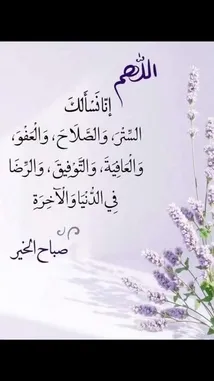 اللهم
إِنَّا نَسْأَلُكَ
السِّتْرَ، وَالصَّلَاحَ، وَالْعَفْوَ،
وَالْعَافِيَةَ، وَالتَّوْفِيقَ، وَالرِّضَا
فِي الدُّنْيَا وَالْآخِرَةِ
صباح الخير